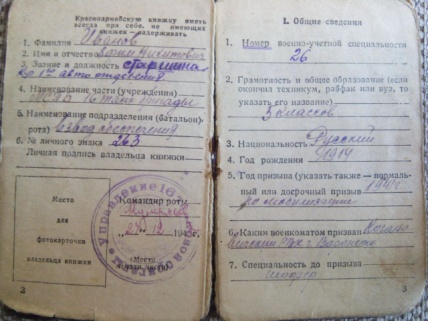 Красноармейскую книжку иметь
всегда при себе, не имеющих
книжек — задерживать
1. Фамилия Иванов
2. Имя и отчество Никитович
3. Звание и должность старшина
автоотделения
4. Наименование части (учреждения)
16 танк бригады
5. Наименование подразделения (батальон,
рота) взвод обеспечения
6. № личного знака 263
Личная подпись владельца книжки
Место
для
фотокарточки
владельца книжки
Командир роты
27 12 194 г.
(Место
печати части)
Управление 16
2
I. Общие сведения
1. Номер военно-учетной специальности
26
2. Грамотность и общее образование (если
окончил техникум, рабфак или вуз, то
указать его название)
3 классов
3. Национальность Русский
4. Год рождения 1914
5. Год призыва (указать также — нормаль-
ный или досрочный призыв) 1941
по мобилизации
6. Каким военкоматом призван
РВК г.
7. Специальность до призыва
шофер
3